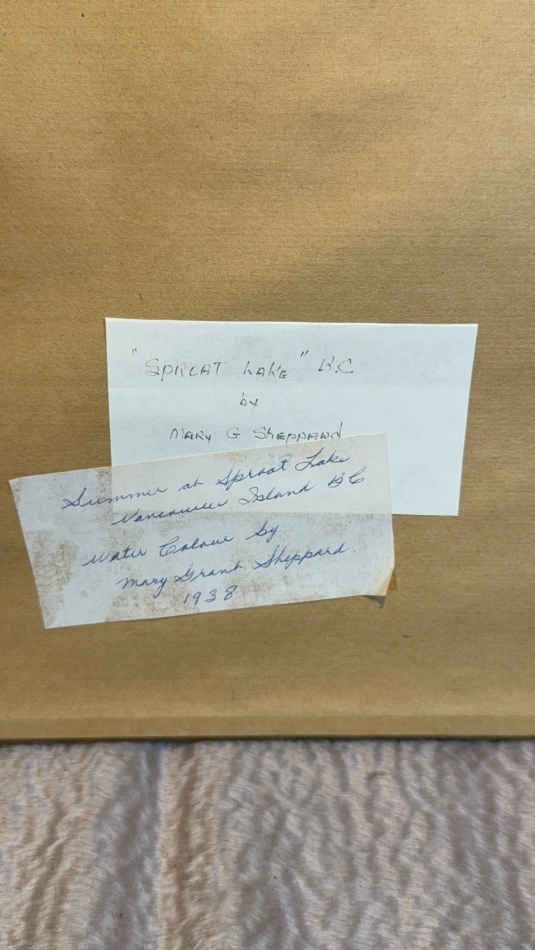 "SPROAT LAKE" B.C
by
MARY G SHEPPARD
Summer at Sproat Lake
Vancouver Island BC
Water Colour by
Mary Grant Sheppard.
1938